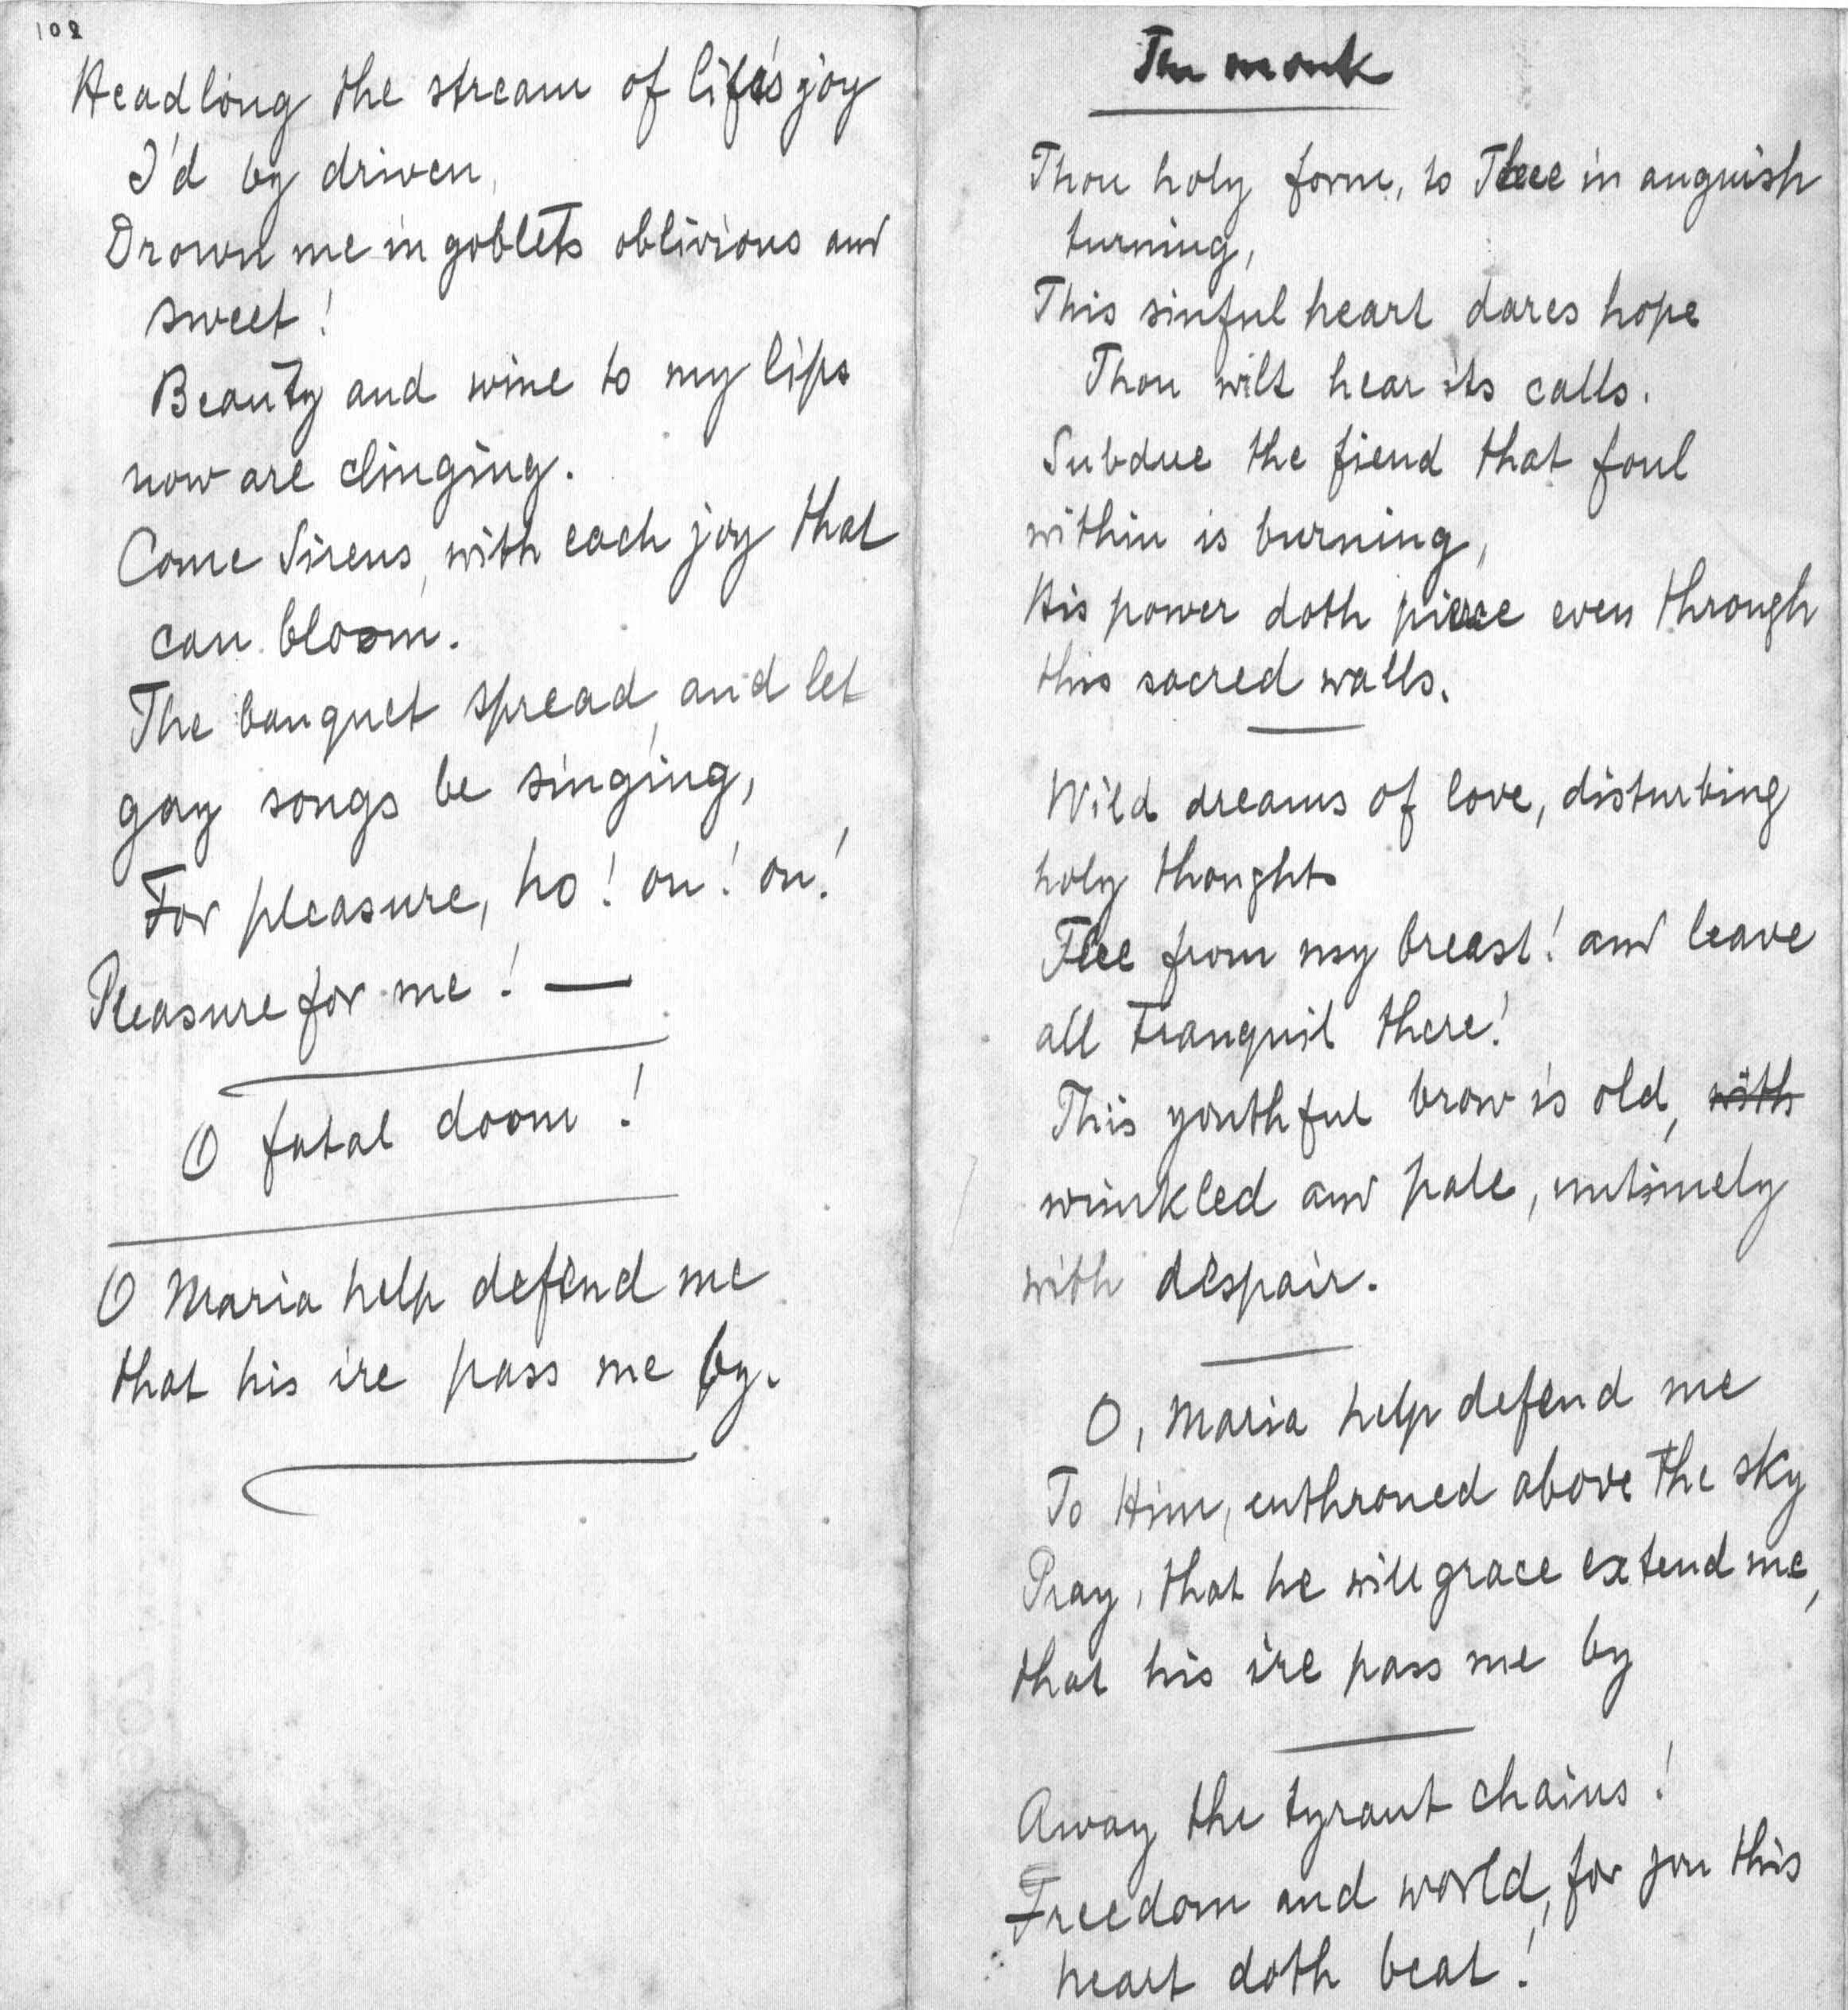 102
Headlong the stream of life's joy
I'd by driven,
Drown me in goblets oblivious and
sweet!
Beauty and wine to my lips
now are clinging.
Come Sirens, with each joy that
can bloom.
The banquet spread, and let
gay songs be singing,
For pleasure, ho! on! on!
Pleasure for me! —
O fatal doom!
O Maria help defend me
that his ire pass me by.
The monk
Thou holy form, to Thee in anguish
turning,
This sinful heart dares hope
Thou wilt hear its calls.
Subdue the fiend that foul
within is burning,
His power doth pierce even through
this sacred walls.
Wild dreams of love, disturbing
holy thoughts
Flee from my breast! and leave
all tranquil there!
This youthful brow is old, with
wrinkled and pale, untimely
with despair.
O, Maria help defend me
To Him, enthroned above the sky
Pray, that he will grace extend me,
that his ire pass me by
Away the tyrant chains!
Freedom and world, for you this
heart doth beat!